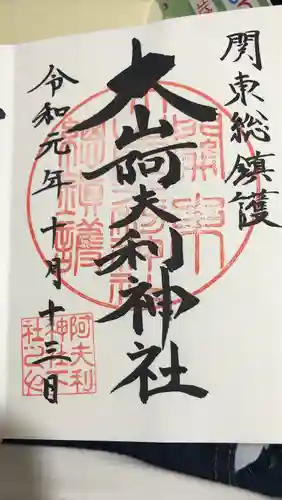 関東総鎮護
大山阿夫利神社
令和元年十月十三日
阿夫利
神社下
社之印